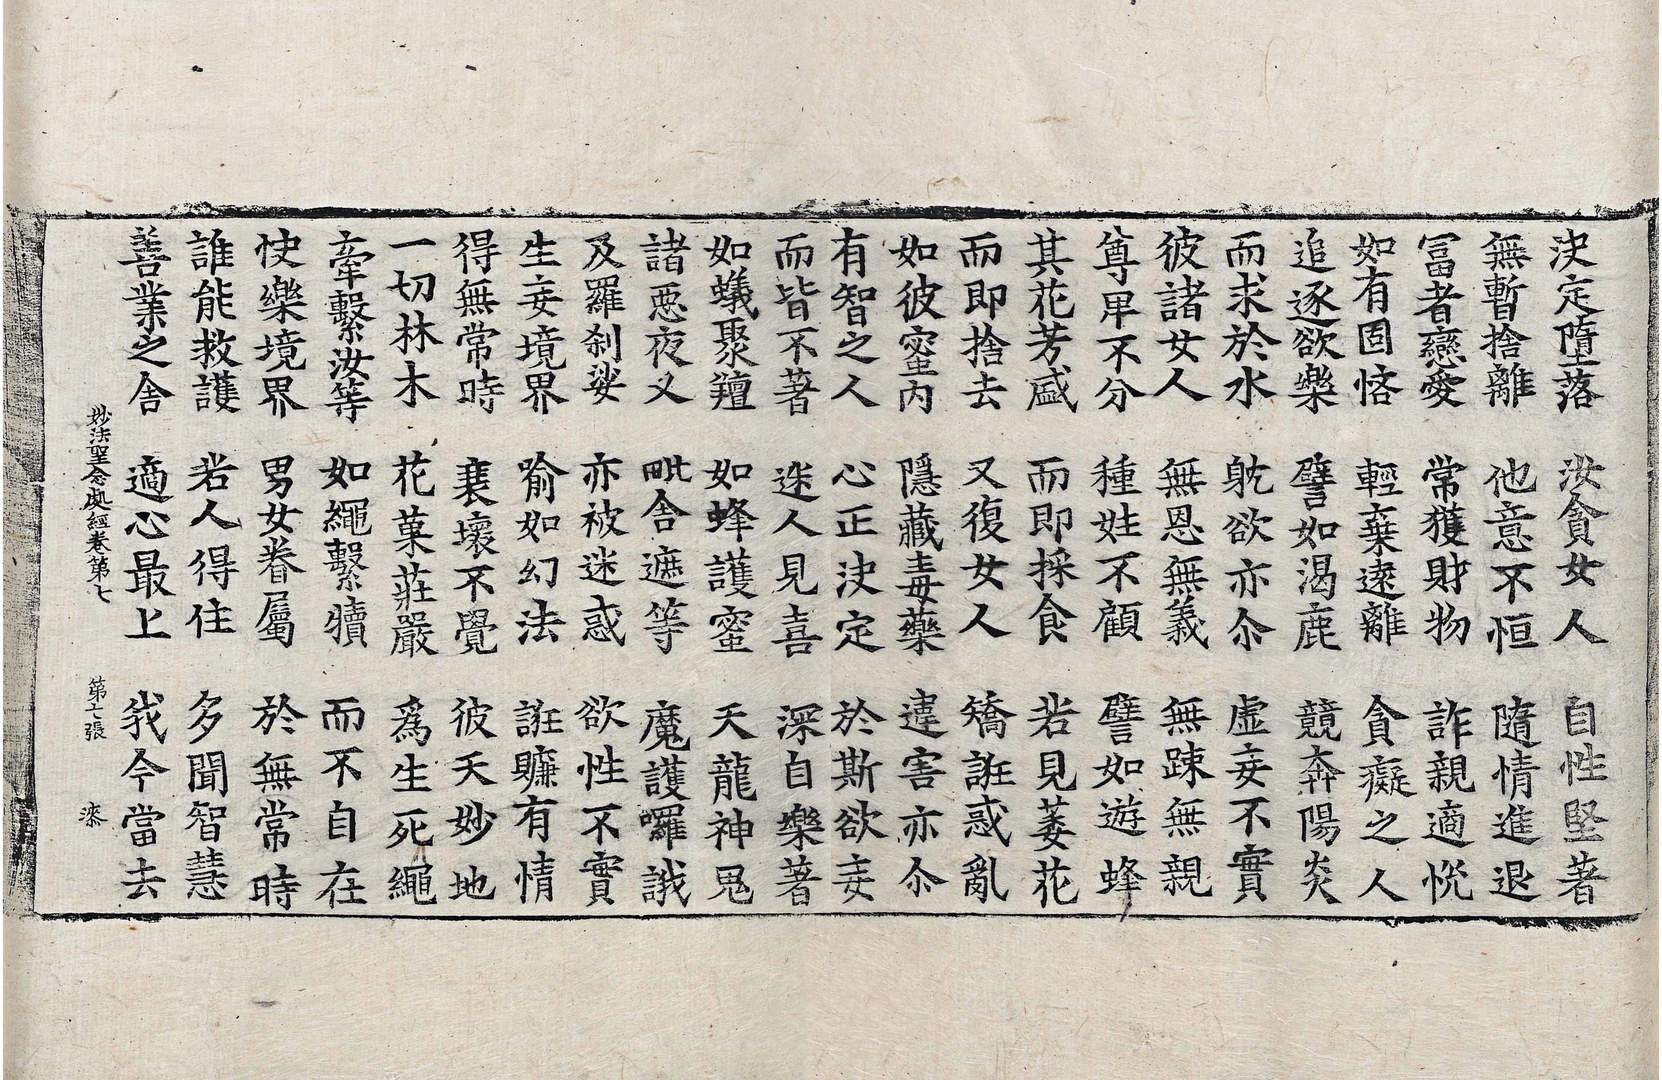 決定墮落　汝貪女人　自性堅著
無暫捨離　他意不恒　隨情進退
冨者戀愛　常獲財物　詐親適恱
如有固恡　輕棄遠離　貪癡之人
追逐欲樂　譬如渴鹿　競奔陽炎
而求於水　躭欲亦尒　虛妄不實
彼諸女人　無恩無義　無踈無親
尊卑不分　種姓不顧　譬如遊蜂
其花芳盛　而即採食　若見萎花
而即捨去　又復女人　矯誑惑亂
如彼蜜內　隱藏毒藥　違害亦尒
有智之人　心正決定　於斯欲妄
而皆不著　迷人見喜　深自樂著
如蟻聚羶　如蜂護蜜　天龍神鬼
諸惡夜叉　毗舍遮等　魔護囉誐
及羅刹娑　亦被迷惑　欲性不實
生妄境界　喻如幻法　誑賺有情
得無常時　衰壞不覺　彼天妙地
一切林木　花菓莊嚴　爲生死繩
牽繫汝等　如繩繫犢　而不自在
快樂境界　男女眷屬　於無常時
誰能救護　若人得住　多聞智慧
善業之舍　適心最上　我今當去
妙法聖念處經卷第七　第七張　漆